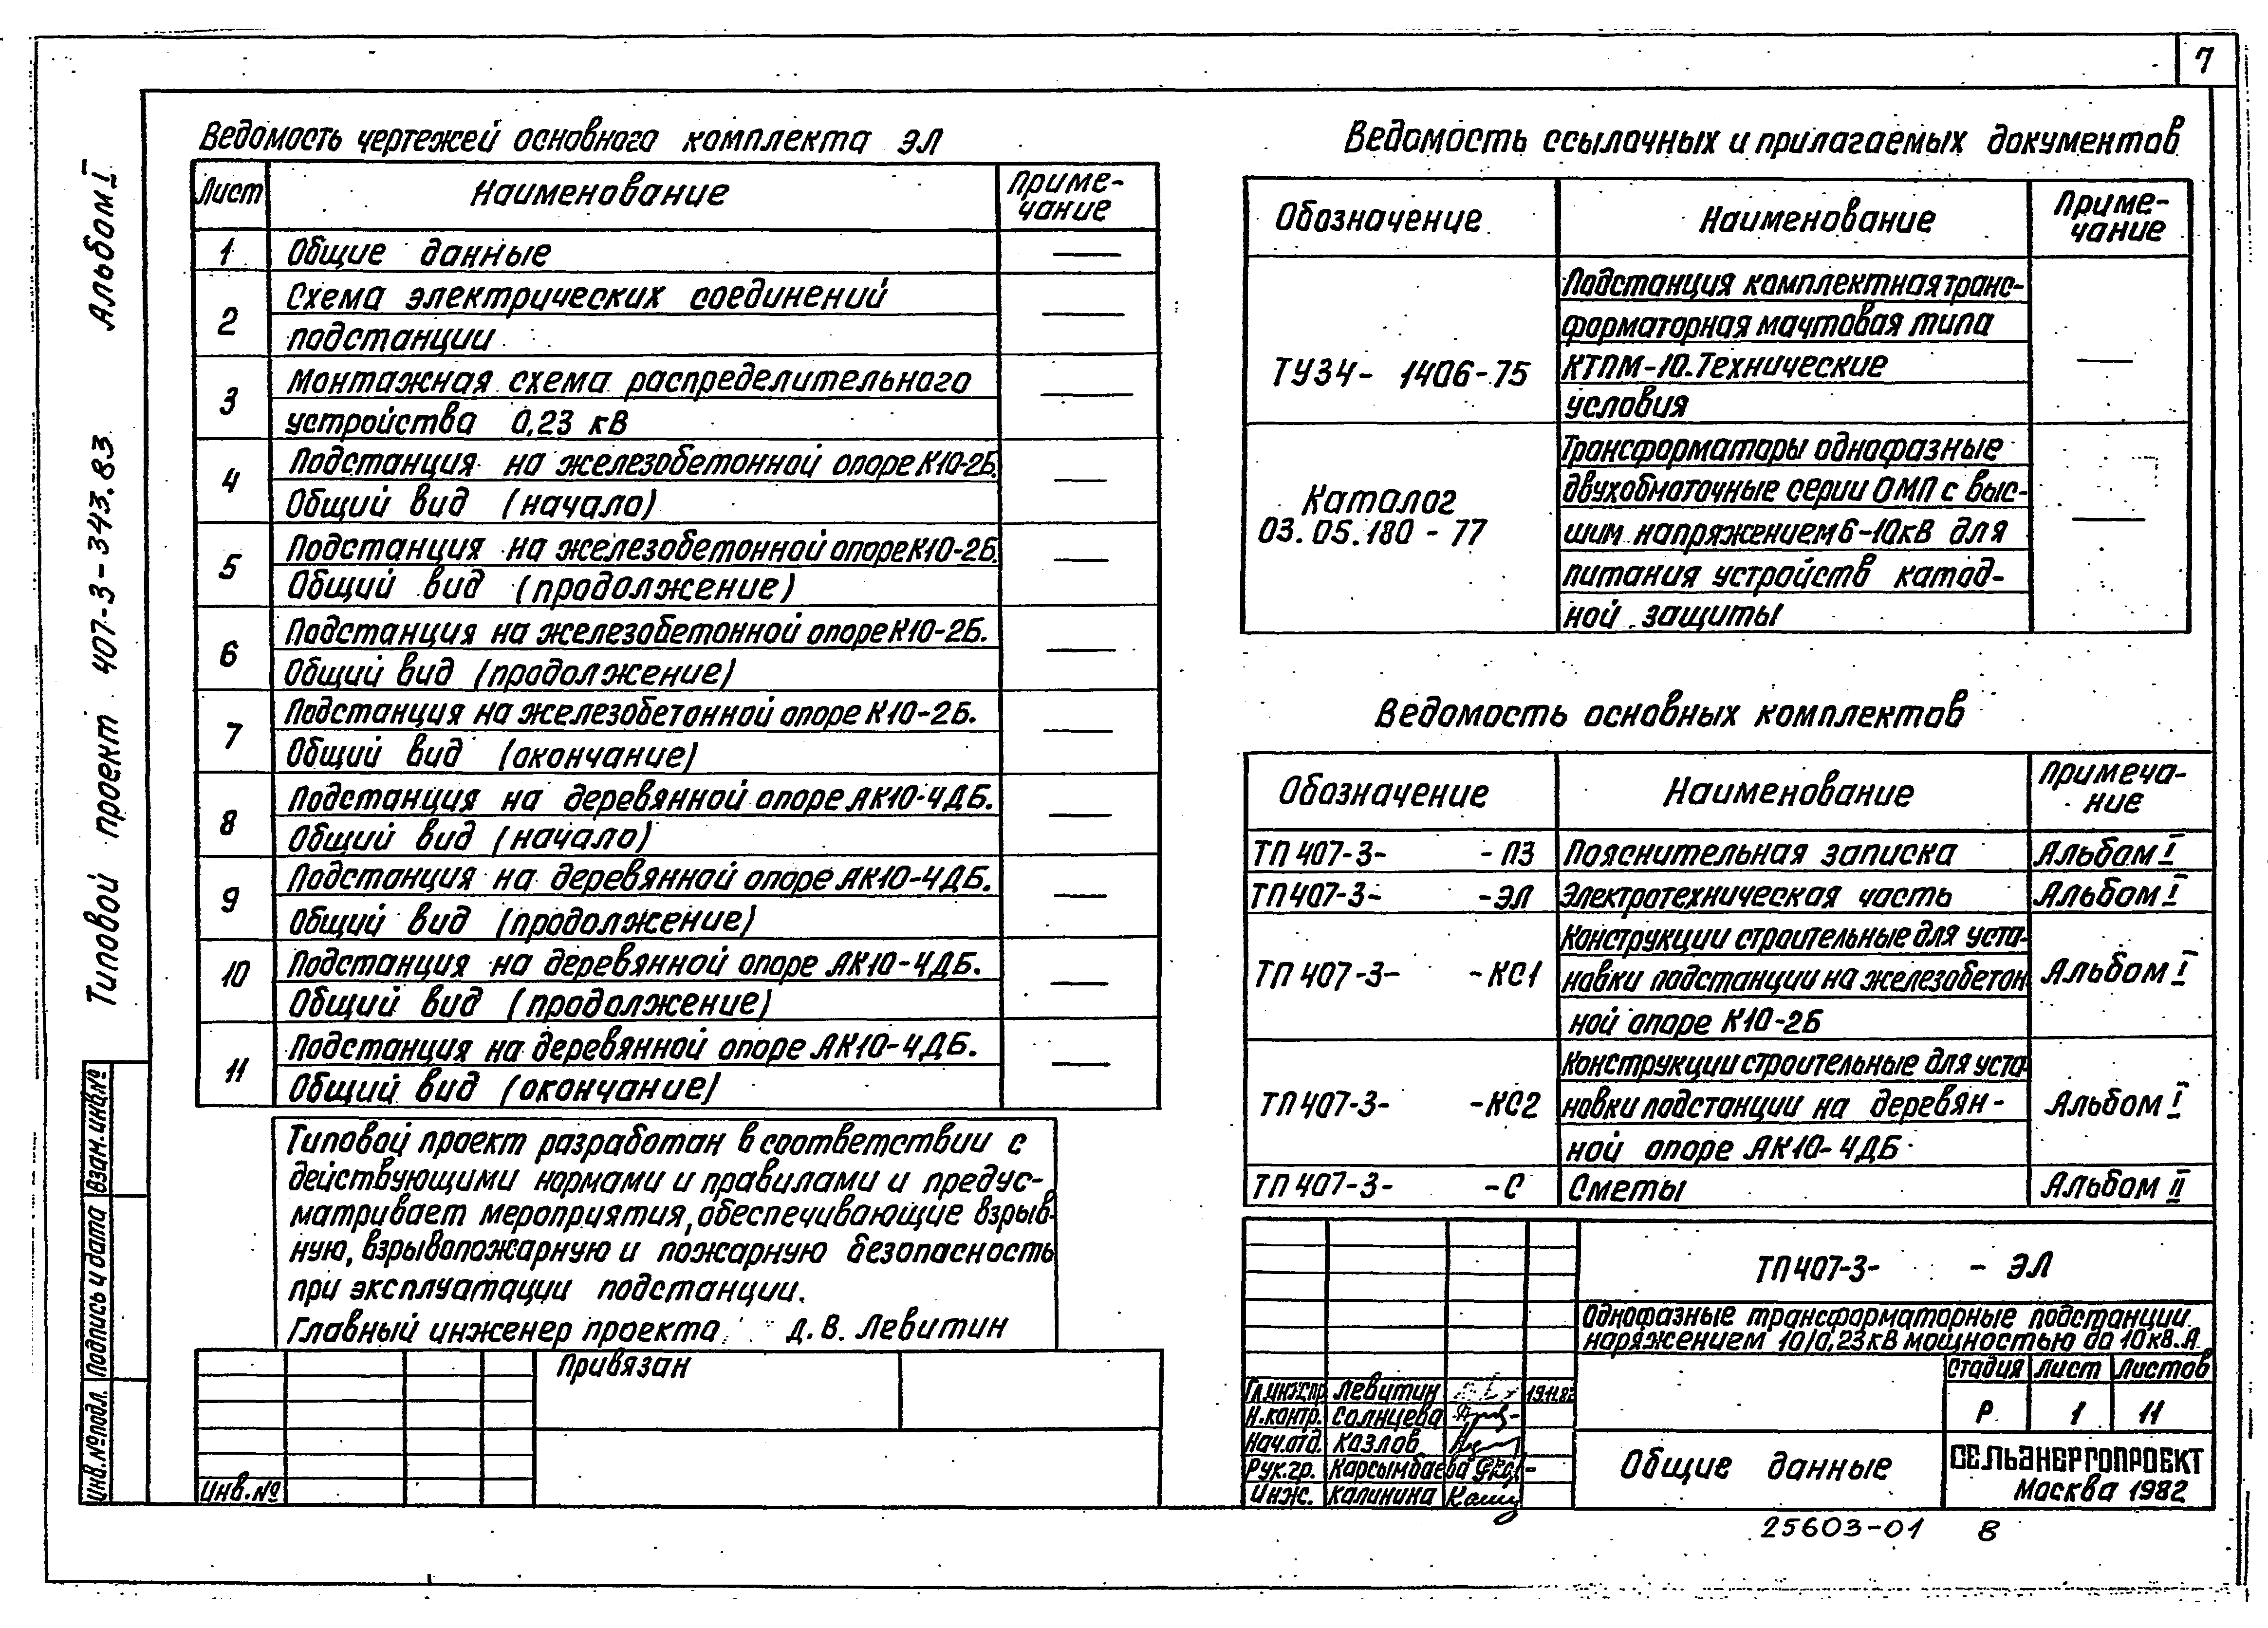 7
Альбом I
Типовой проект 407-3-343.83
Ведомость чертежей основного комплекта ЭЛ
Лист
Наименование
Приме-
чание
1
Общие данные
—
2
Схема электрических соединений
подстанции
—
3
Монтажная схема распределительного
устройства 0,23 кВ
—
4
Подстанция на железобетонной опоре К10-2Б.
Общий вид (начало)
—
5
Подстанция на железобетонной опоре К10-2Б.
Общий вид (продолжение)
—
6
Подстанция на железобетонной опоре К10-2Б.
Общий вид (продолжение)
—
7
Подстанция на железобетонной опоре К10-2Б.
Общий вид (окончание)
—
8
Подстанция на деревянной опоре АК10-4ДБ.
Общий вид (начало)
—
9
Подстанция на деревянной опоре АК10-4ДБ.
Общий вид (продолжение)
—
10
Подстанция на деревянной опоре АК10-4ДБ.
Общий вид (продолжение)
—
11
Подстанция на деревянной опоре АК10-4ДБ.
Общий вид (окончание)
—
Типовой проект разработан в соответствии с
действующими нормами и правилами и предус-
матривает мероприятия, обеспечивающие взрыв-
ную, взрывопожарную и пожарную безопасность
при эксплуатации подстанции.
Главный инженер проекта Д.В. Левитин
Привязан
Инв.№
Взан.инв.№
Подпись и дата
Инв.№подл.
Ведомость ссылочных и прилагаемых документов
Обозначение
Наименование
Приме-
чание
ТУ34- 1406-75
Подстанция комплектная транс-
форматорная мачтовая типа
КТПМ-10. Технические
условия
—
Каталог
03.05.180-77
Трансформаторы однофазные
двухобмоточные серии ОМП с выс-
шим напряжением 6-10кВ для
питания устройств катод-
ной защиты
—
Ведомость основных комплектов
Обозначение
Наименование
Примеча-
ние
ТП 407-3- -ПЗ
Пояснительная записка
Альбом I
ТП 407-3- -ЭЛ
Электротехническая часть
Альбом I
ТП 407-3- -КС1
Конструкции строительные для уста-
новки подстанции на железобетон
ной опоре К10-2Б
Альбом I
ТП 407-3- -КС2
Конструкции строительные для уста-
новки подстанции на деревян-
ной опоре АК10-4ДБ
Альбом I
ТП 407-3- -С
Сметы
Альбом II
ТП 407-3- - ЭЛ
Однофазные трансформаторные подстанции
наряжением 10/0,23кВ мощностью до 10кВ.А
Стадия Лист Листов
Р 1 11
Гл.инж.пр. Левитин 19.11.82
Н.контр. Солнцева
Нач.отд. Козлов
Рук.гр. Карсымбаева
Инж. Калинина
Общие данные
СЕЛЬЭНЕРГОПРОЕКТ
Москва 1982
25603-01 8